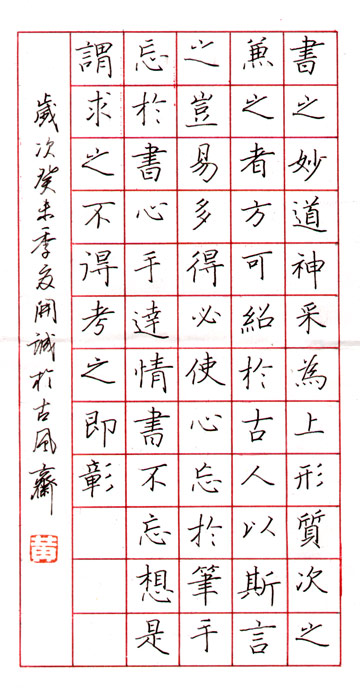 書之妙道神采為上形質次之
兼之者方可紹於古人以斯言
之豈易多得必使心忘於筆手
忘於書心手達情書不忘想是
謂求之不得考之即彰
歲次癸未季夏開誠於古風齋
黄